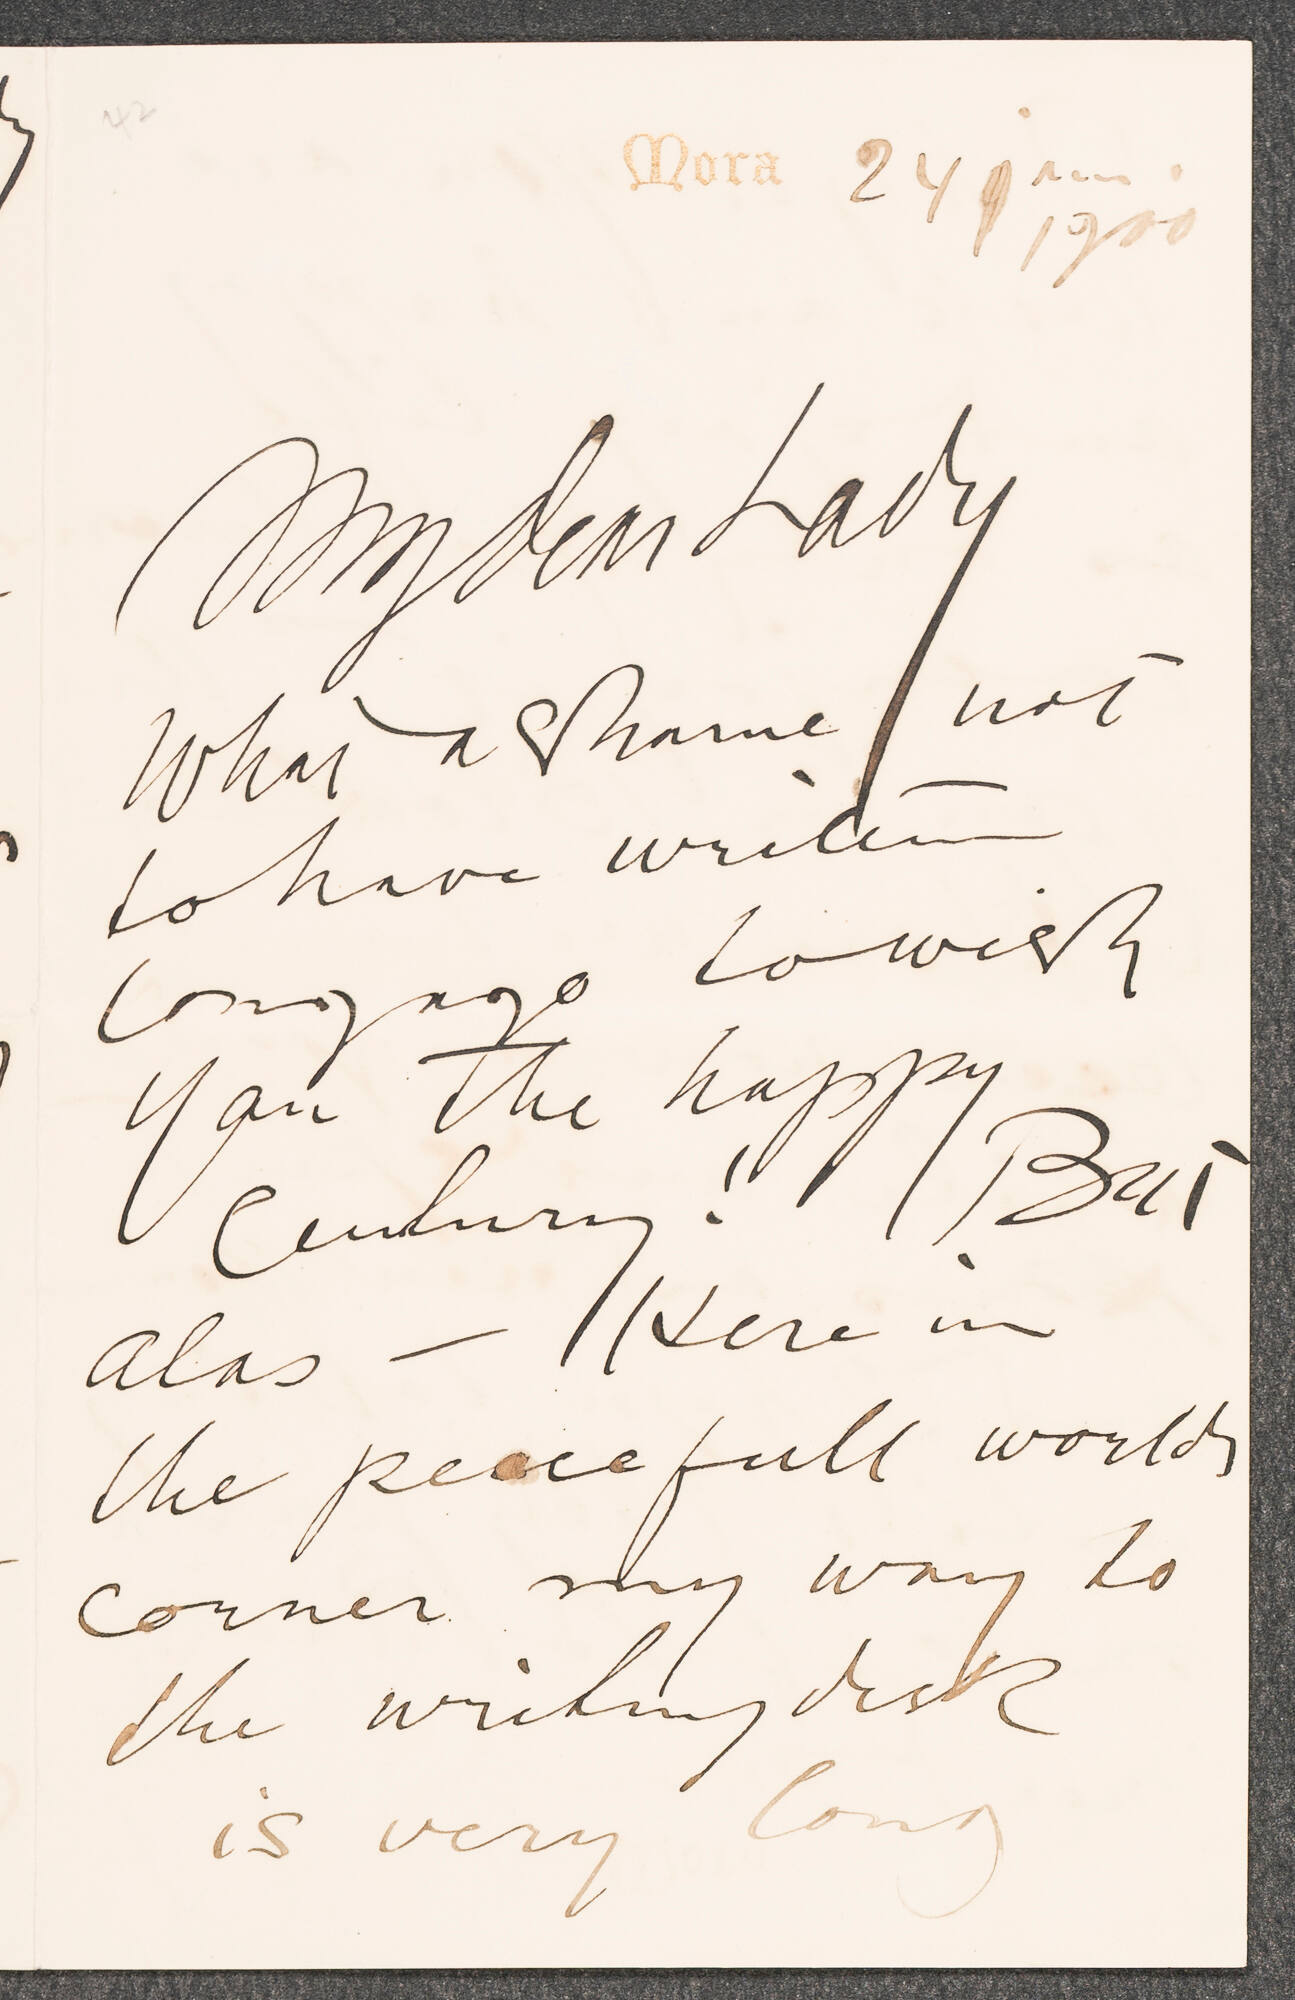 42
Mora 24 jan.
1900
My dear Lady
What a shame not
to have written
long ago to wish
you the happy
Century! But
alas — Here in
the peacefull worlds
corner my way to
the writing desk
is very long